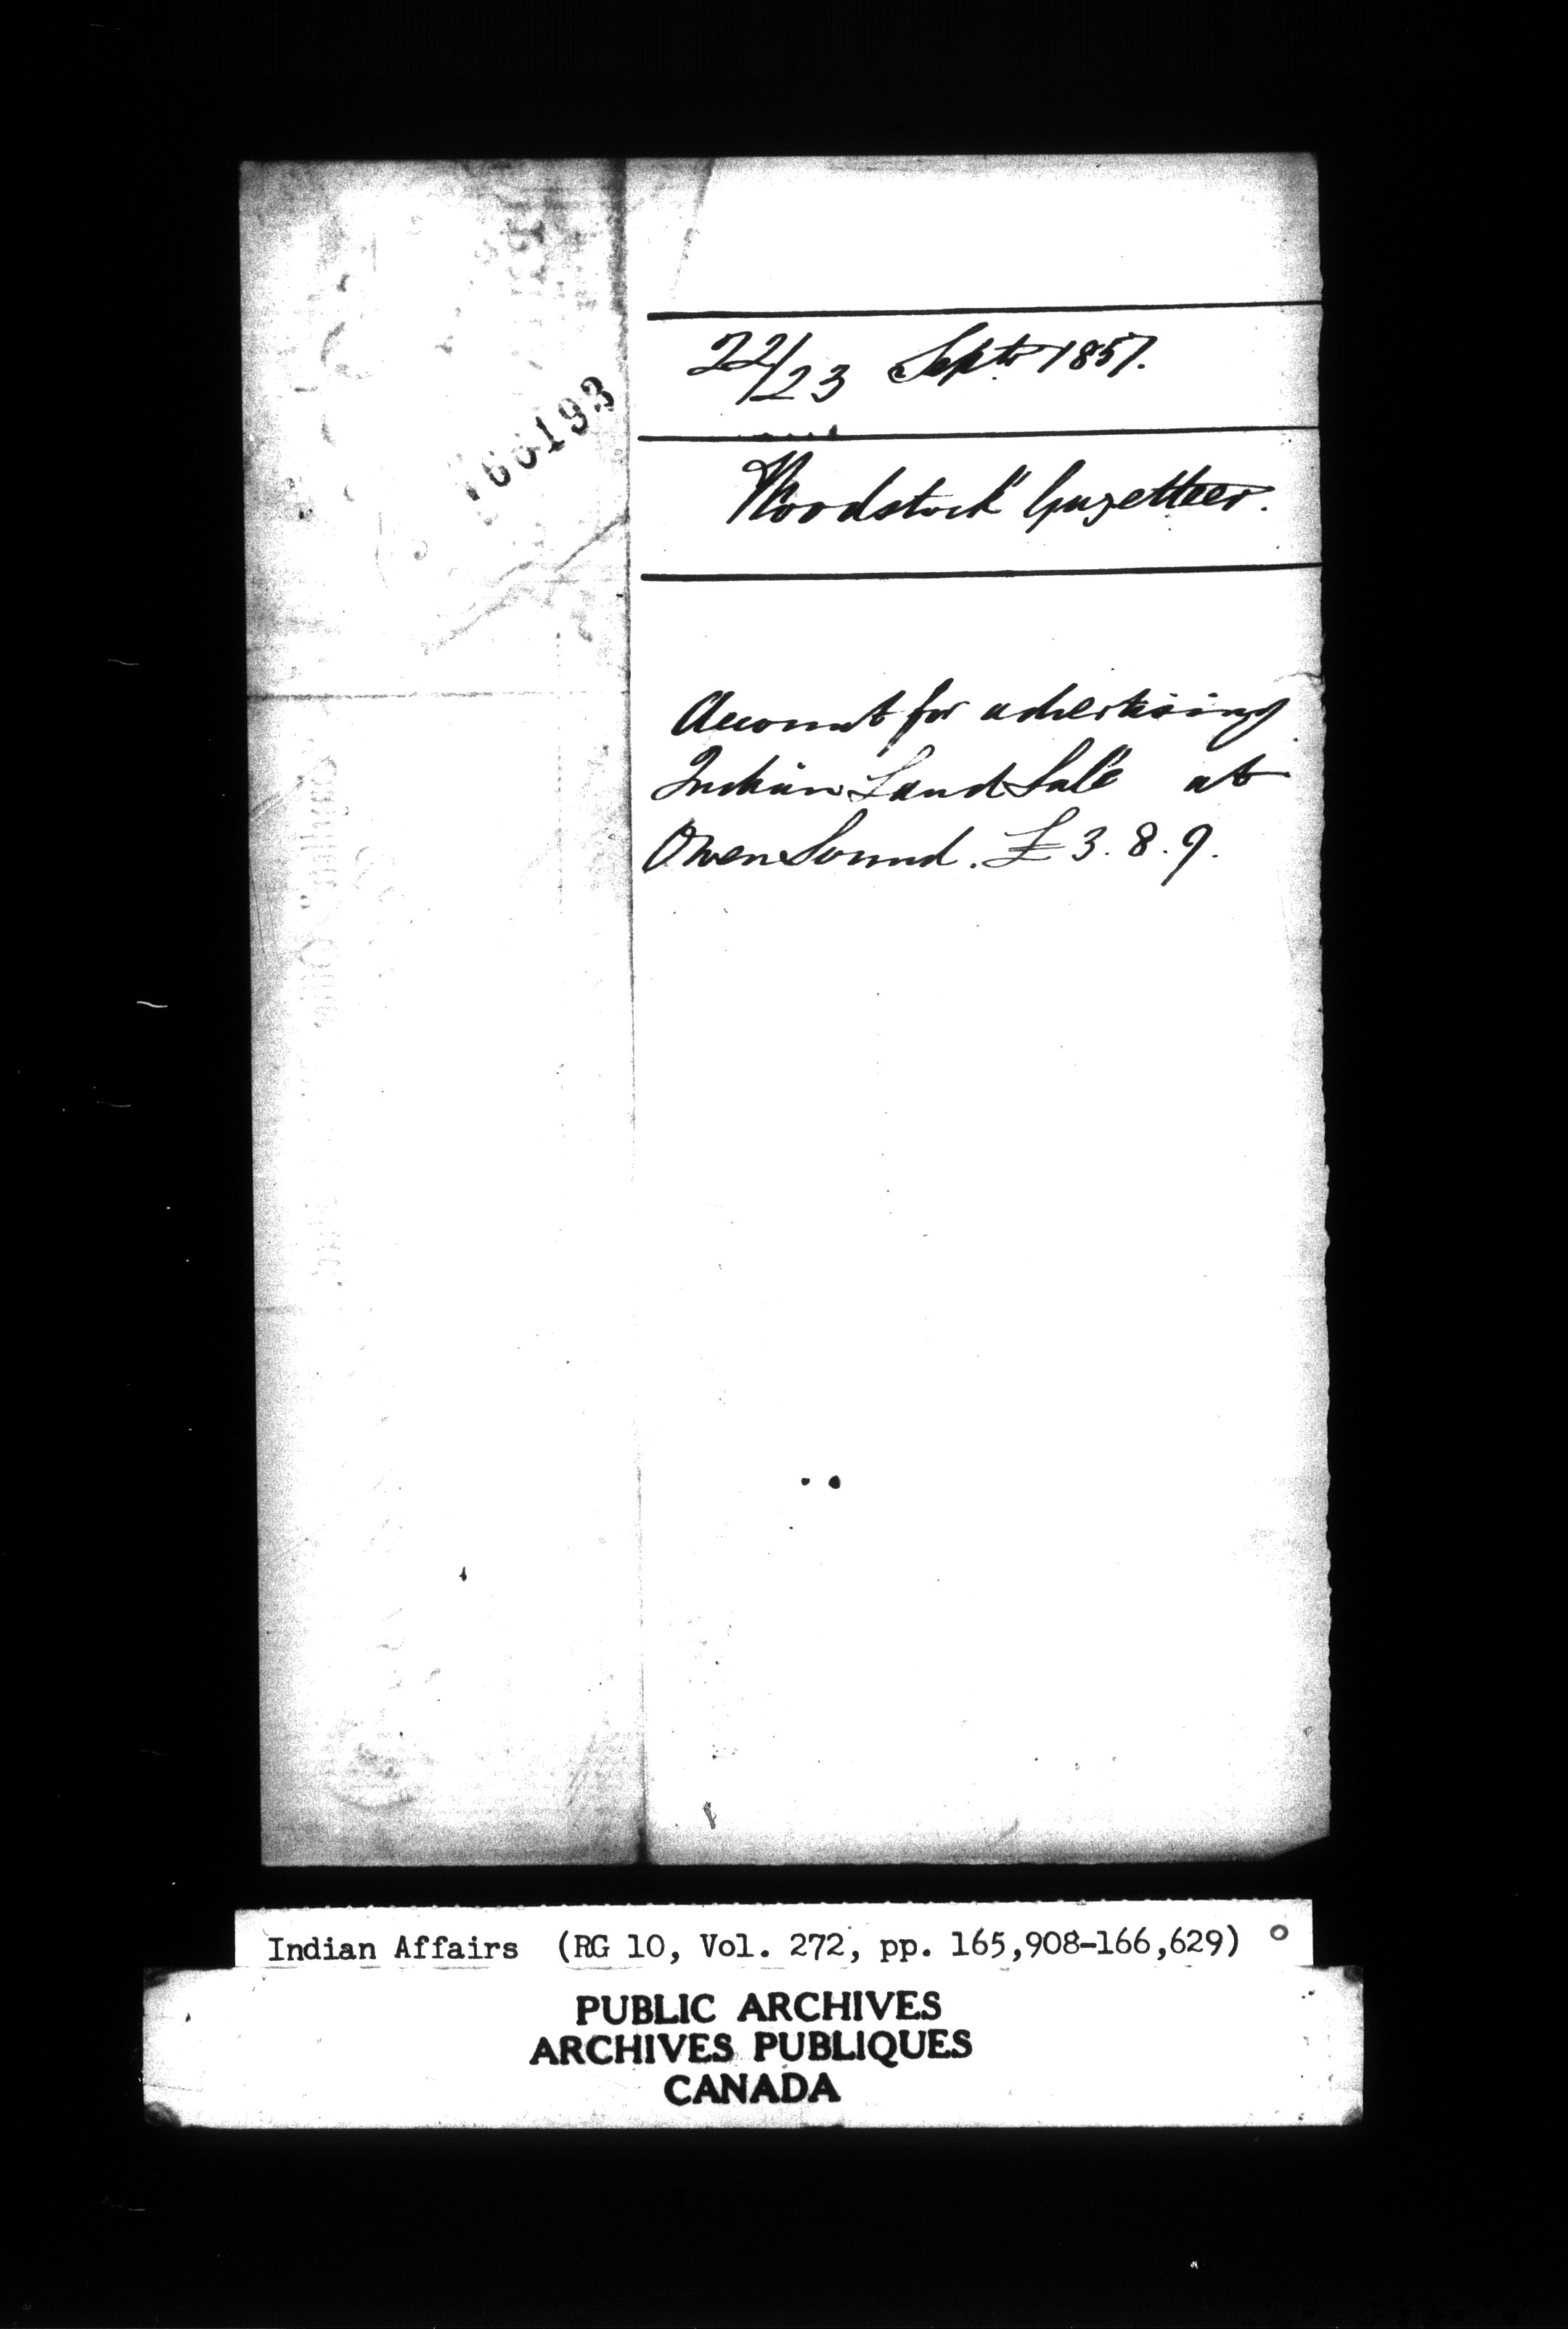 166193
22/23 Septr 1857.
Woodstock" Gazetteer.
Account for advertising
Indian Land Sale at
Owen Sound. £3.8.9.
Indian Affairs (RG 10, Vol. 272, pp. 165,908-166,629)
PUBLIC ARCHIVES
ARCHIVES PUBLIQUES
CANADA